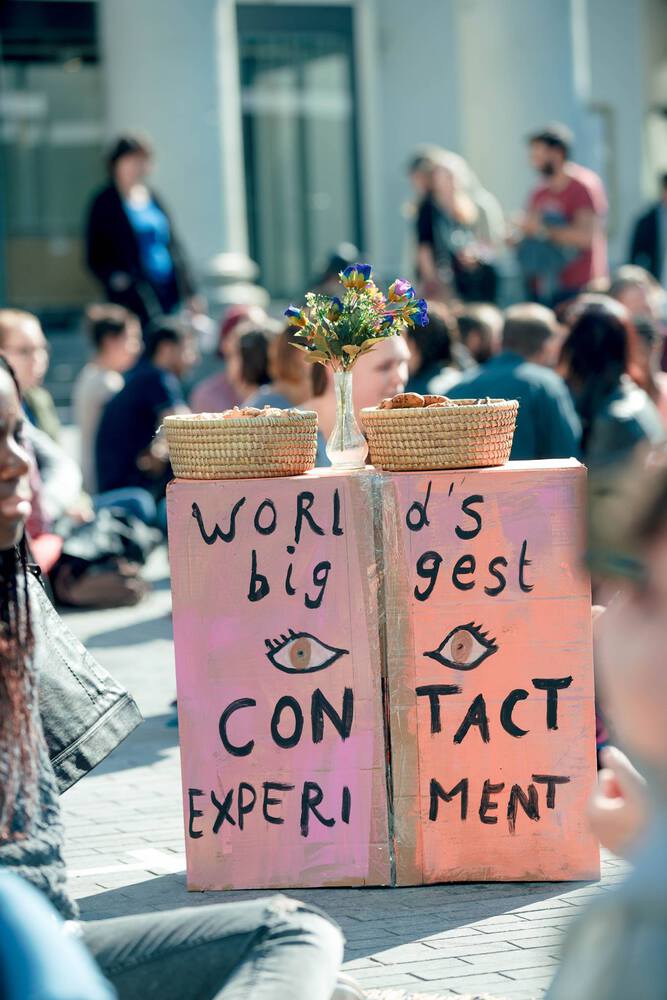 WORLd's
biggest
CONTACT
EXPERIMENT